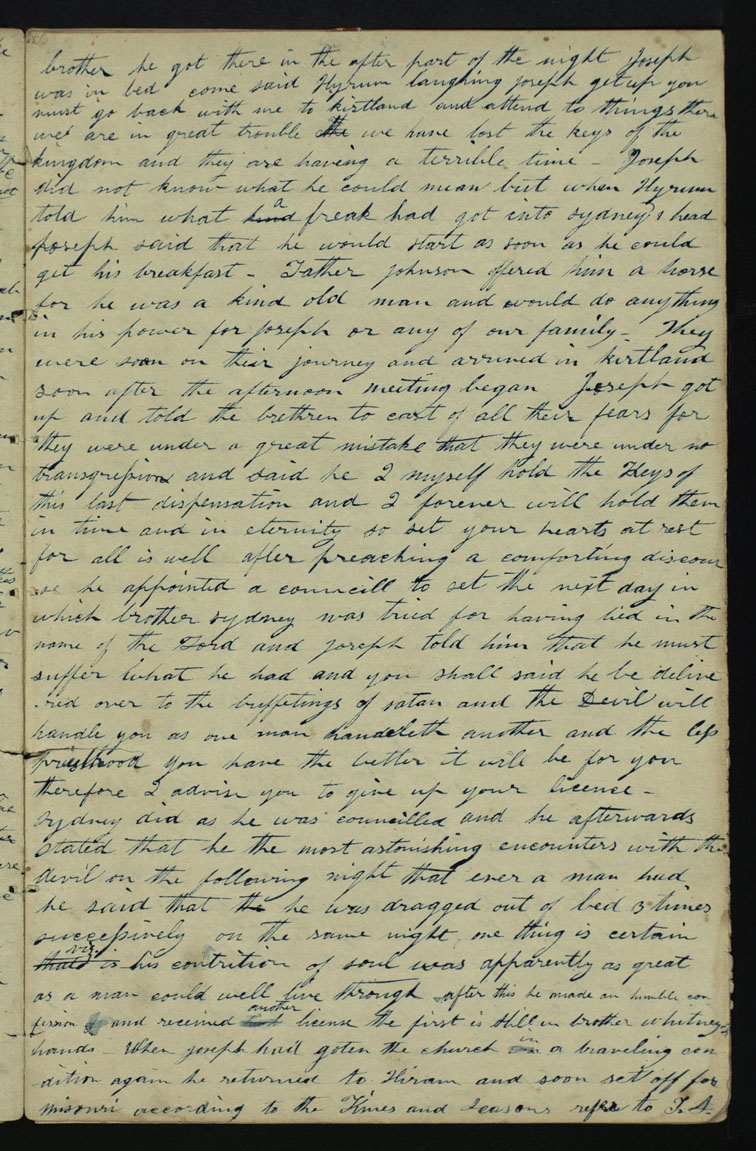 brother he got there in the after part of the night Joseph
was in bed come said Hyrum laughing joseph get up you
must go back with me to kirtland and attend to things there
we are in great trouble the we have lost the keys of the
kingdom and they are having a terrible time - Joseph
did not know what he could mean but when Hyrum
told him what kind a freak had got into sydney's head
joseph said that he would start as soon as he could
get his breakfast - Father johnson offered him a horse
for he was a kind old man and would do anything
in his power for joseph or any of our family - They
were soon on their journey and arrived in kirtland
soon after the afternoon meeting began Joseph got
up and told the brethren to cast of all their fears for
they were under a great mistake that they were under no
transgression and said he I myself hold the Keys of
this last dispensation and I forever will hold them
in time and in eternity so set your hearts at rest
for all is well after preaching a comforting discour
se he appointed a councill to set the next day in
which brother sydney was tried for having lied in the
name of the Lord and joseph told him that he must
suffer what he had and you shall said he be delive
-red over to the buffetings of satan and the Devil will
handle you as one man handeleth another and the less
priesthood you have the better it will be for you
therefore I advise you to give up your licence -
sydney did as he was councilled and he afterwards
stated that he the most astonishing encounters with the
devil on the following night that ever a man had
he said that th he was dragged out of bed 3 times
successively on the same night one thing is certain
that is viz his contrition of soul was apparently as great
as a man could well live through after this he made an humble con
fession and received another license the first is still in brother whitneys
hands - When joseph had goten the church in a traveling con
dition again he returned to Hiram and soon set off for
misouri according to the Times and Seasons refer to T. S.